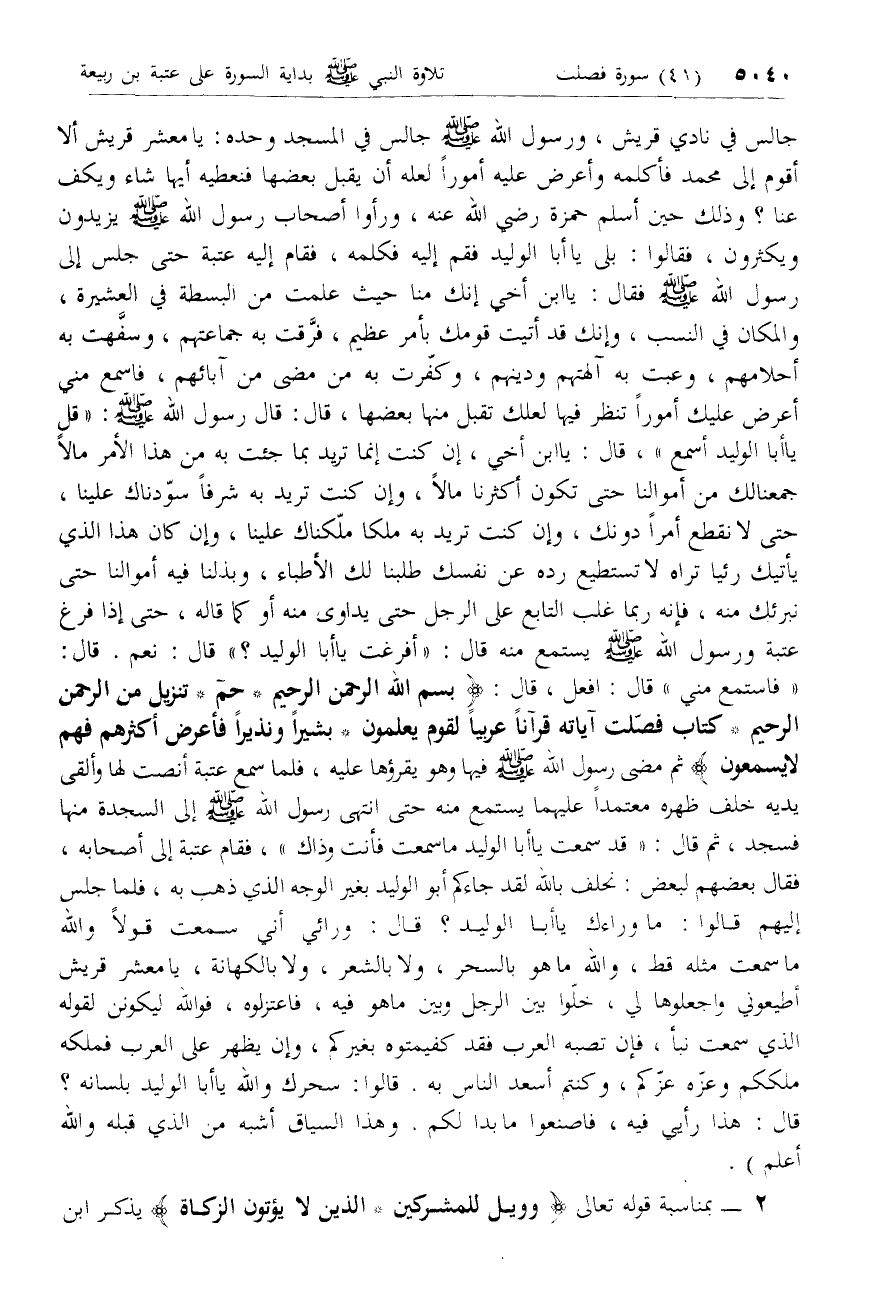 ٥٠٤٠ (٤١) سورة فصلت تلاوة النبي ﷺ بداية السورة على عتبة بن ربيعة
جالس في نادي قريش ، ورسول الله ﷺ جالس في المسجد وحده : يامعشر قريش ألا
أقوم إلى محمد فأكلمه وأعرض عليه أموراً لعله أن يقبل بعضها فنعطيه أيها شاء ويكف
عنا ؟ وذلك حين أسلم حمزة رضي الله عنه ، ورأوا أصحاب رسول الله ﷺ يزيدون
ويكثرون ، فقالوا : بلى ياأبا الوليد فقم إليه فكلمه ، فقام إليه عتبة حتى جلس إلى
رسول الله ﷺ فقال : ياابن أخي إنك منا حيث علمت من البسطة في العشيرة ،
والمكان في النسب ، وإنك قد أتيت قومك بأمر عظيم ، فرَّقت به جماعتهم ، وسفَّهت به
أحلامهم ، وعبت به آلهتهم ودينهم ، وكفّرت به من مضى من آبائهم ، فاسمع مني
أعرض عليك أموراً تنظر فيها لعلك تقبل منها بعضها ، قال : قال رسول الله ﷺ : « قل
ياأبا الوليد أسمع » ، قال : ياابن أخي ، إن كنت إنما تريد بما جئت به من هذا الأمر مالاً
جمعنالك من أموالنا حتى تكون أكثرنا مالاً ، وإن كنت تريد به شرفاً سوّدناك علينا ،
حتى لانقطع أمراً دونك ، وإن كنت تريد به ملكا ملّكناك علينا ، وإن كان هذا الذي
يأتيك رئيا تراه لاتستطيع رده عن نفسك طلبنا لك الأطباء ، وبذلنا فيه أموالنا حتى
نبرئك منه ، فإنه ربما غلب التابع على الرجل حتى يداوى منه أو كما قاله ، حتى إذا فرغ
عتبة ورسول الله ﷺ يستمع منه قال : « أفرغت ياأبا الوليد ؟» قال : نعم . قال :
« فاستمع مني » قال : افعل ، قال : ﴿ بسم الله الرحمن الرحيم * حمّ * تنزيل من الرحمن
الرحيم * كتاب فصّلت آياته قرآناً عربياً لقوم يعلمون * بشيراً ونذيراً فأعرض أكثرهم فهم
لايسمعون ﴾ ثم مضى رسول الله ﷺ فيها وهو يقرؤها عليه ، فلما سمع عتبة أنصت لها وألقى
يديه خلف ظهره معتمداً عليهما يستمع منه حتى انتهى رسول الله ﷺ إلى السجدة منها
فسجد ، ثم قال : « قد سمعت ياأبا الوليد ماسمعت فأنت وذاك » ، فقام عتبة إلى أصحابه ،
فقال بعضهم لبعض : نحلف بالله لقد جاءكم أبو الوليد بغير الوجه الذي ذهب به ، فلما جلس
إليهم قالوا : ماوراءك ياأبا الوليد ؟ قال : ورائي أني سمعت قولاً والله
ماسمعت مثله قط ، والله ماهو بالسحر ، ولابالشعر ، ولابالكهانة ، يامعشر قريش
أطيعوني واجعلوها لي ، خلّوا بين الرجل وبين ماهو فيه ، فاعتزلوه ، فوالله ليكونن لقوله
الذي سمعت نبأ ، فإن تصبه العرب فقد كفيمتوه بغيركم ، وإن يظهر على العرب فملكه
ملككم وعزّه عزّكم ، وكنتم أسعد الناس به . قالوا : سحرك والله ياأبا الوليد بلسانه ؟
قال : هذا رأيي فيه ، فاصنعوا مابدا لكم . وهذا السياق أشبه من الذي قبله والله
أعلم ) .
٢ ــ بمناسبة قوله تعالى ﴿ وويل للمشركين * الذين لا يؤتون الزكاة ﴾ يذكر ابن